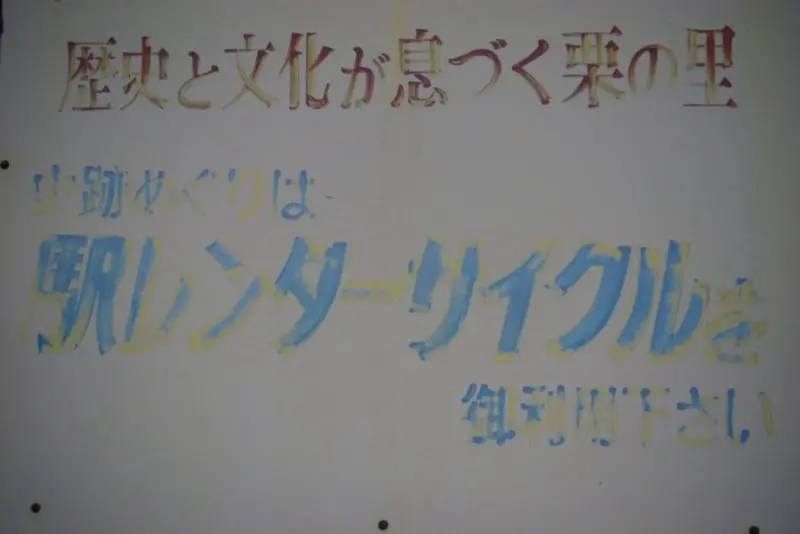 歴史と文化が息づく栗の里
史跡めぐりは
駅レンターサイクルを
御利用下さい